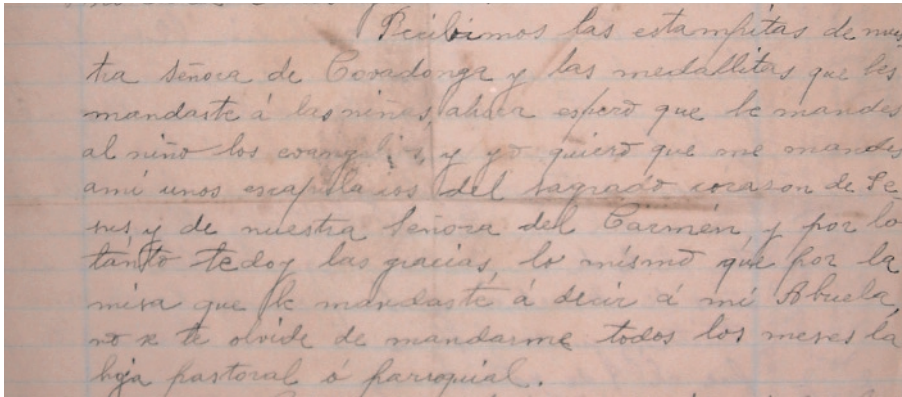 Recibimos las estampitas de nues
tra Señora de Covadonga y las medallitas que les
mandaste á las niñas, ahora espero que le mandes
al niño los evangelios, y yo quiero que me mandes
ami unos escapularios del sagrado corason de Je-
sus y de nuestra Señora del Carmén y por lo
tánto te doy las gracias, lo mísmo que por la
misa que le mandaste á decir á mi Abuela,
no se te olvide de mandarme todos los meses la
hoja pastoral ó parroquial.